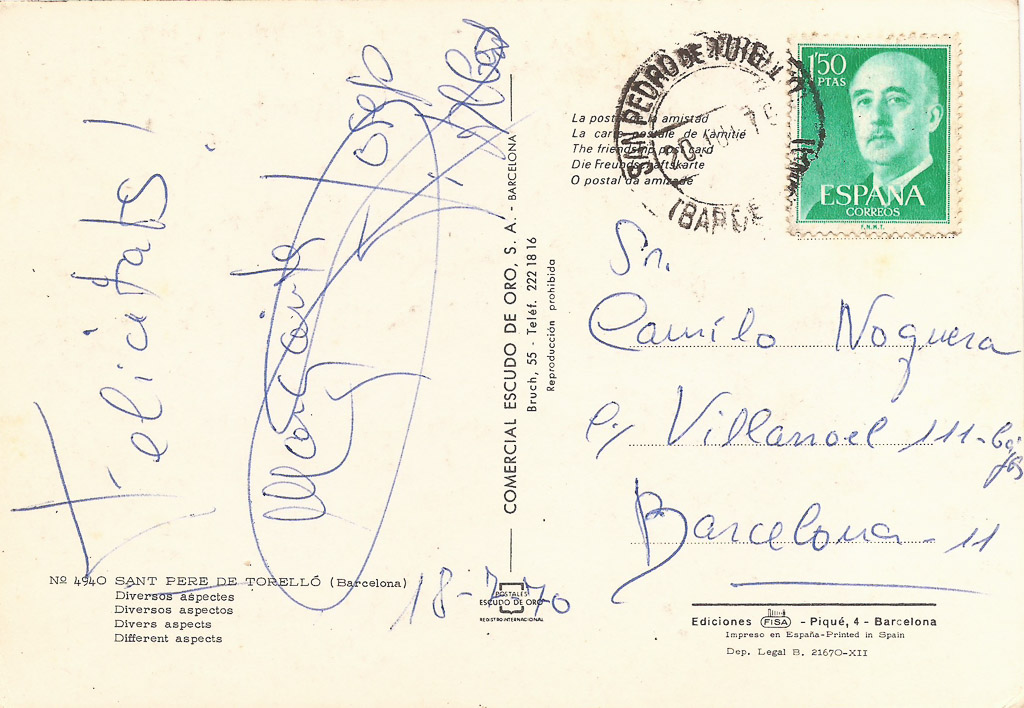 Felicitats!
Nº 4940 SANT PERE DE TORELLÓ (Barcelona)
Diversos aspectes
Diversos aspectos
Divers aspects
Different aspects
18-7-70
COMERCIAL ESCUDO DE ORO, S. A. - BARCELONA
Bruch, 55 - Teléf. 222 18 16
Reproducción prohibida
POSTALES
ESCUDO DE ORO
REGISTRO INTERNACIONAL
La postal de la amistad
La carte postale de l'amitié
The friendship post card
Die Freundschaftskarte
O postal da amizade
SAN PEDRO DE TORELLO
1'50
PTAS
ESPAÑA
CORREOS
F.N.M.T.
Sr.
Camilo Noguera
c/ Villarroel 111-bajos
Barcelona - 11
Ediciones FISA - Piqué, 4 - Barcelona
Impreso en España-Printed in Spain
Dep. Legal B. 21670-XII